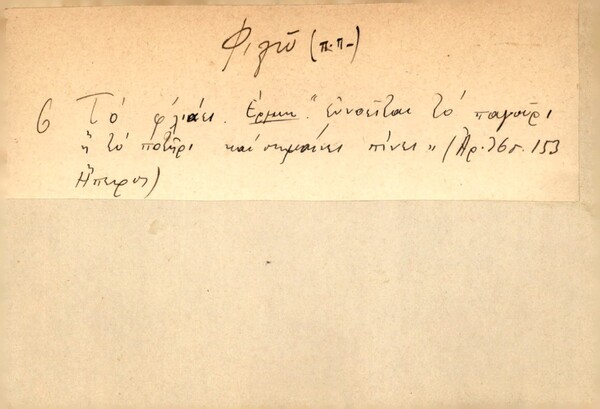 Φιλῶ (π.π-)
6 Τὸ φιλιάει. Ἑρμην. "ἐννοεῖται τὸ παγοῦρι
ἢ τὸ ποτῆρι καὶ σημαίνει πίνει" (Ἀρ. 153
Ἤπειρος)